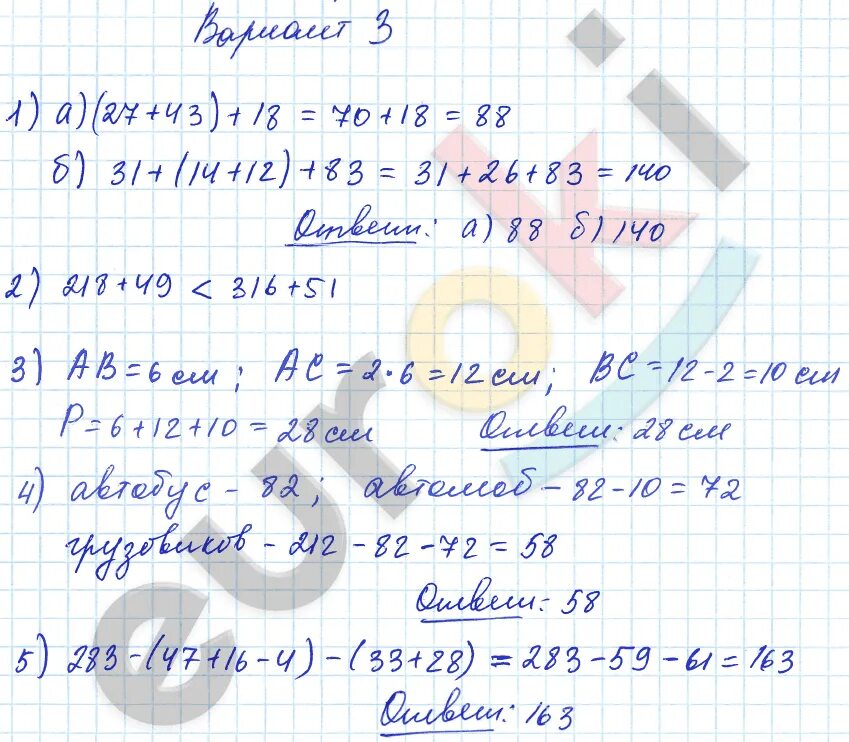 Вариант 3
1) а) (27+43)+18 = 70+18 = 88
б) 31+(14+12)+83 = 31+26+83 = 140
Ответ: а) 88 б) 140
2) 218+49 < 316+51
3) AB = 6 см; AC = 2·6 = 12 см; BC = 12-2 = 10 см
P = 6+12+10 = 28 см Ответ: 28 см
4) автобус - 82; автомоб - 82-10 = 72
грузовиков - 212-82-72 = 58
Ответ: 58
5) 283-(47+16-4)-(33+28) = 283-59-61 = 163
Ответ: 163
euroki